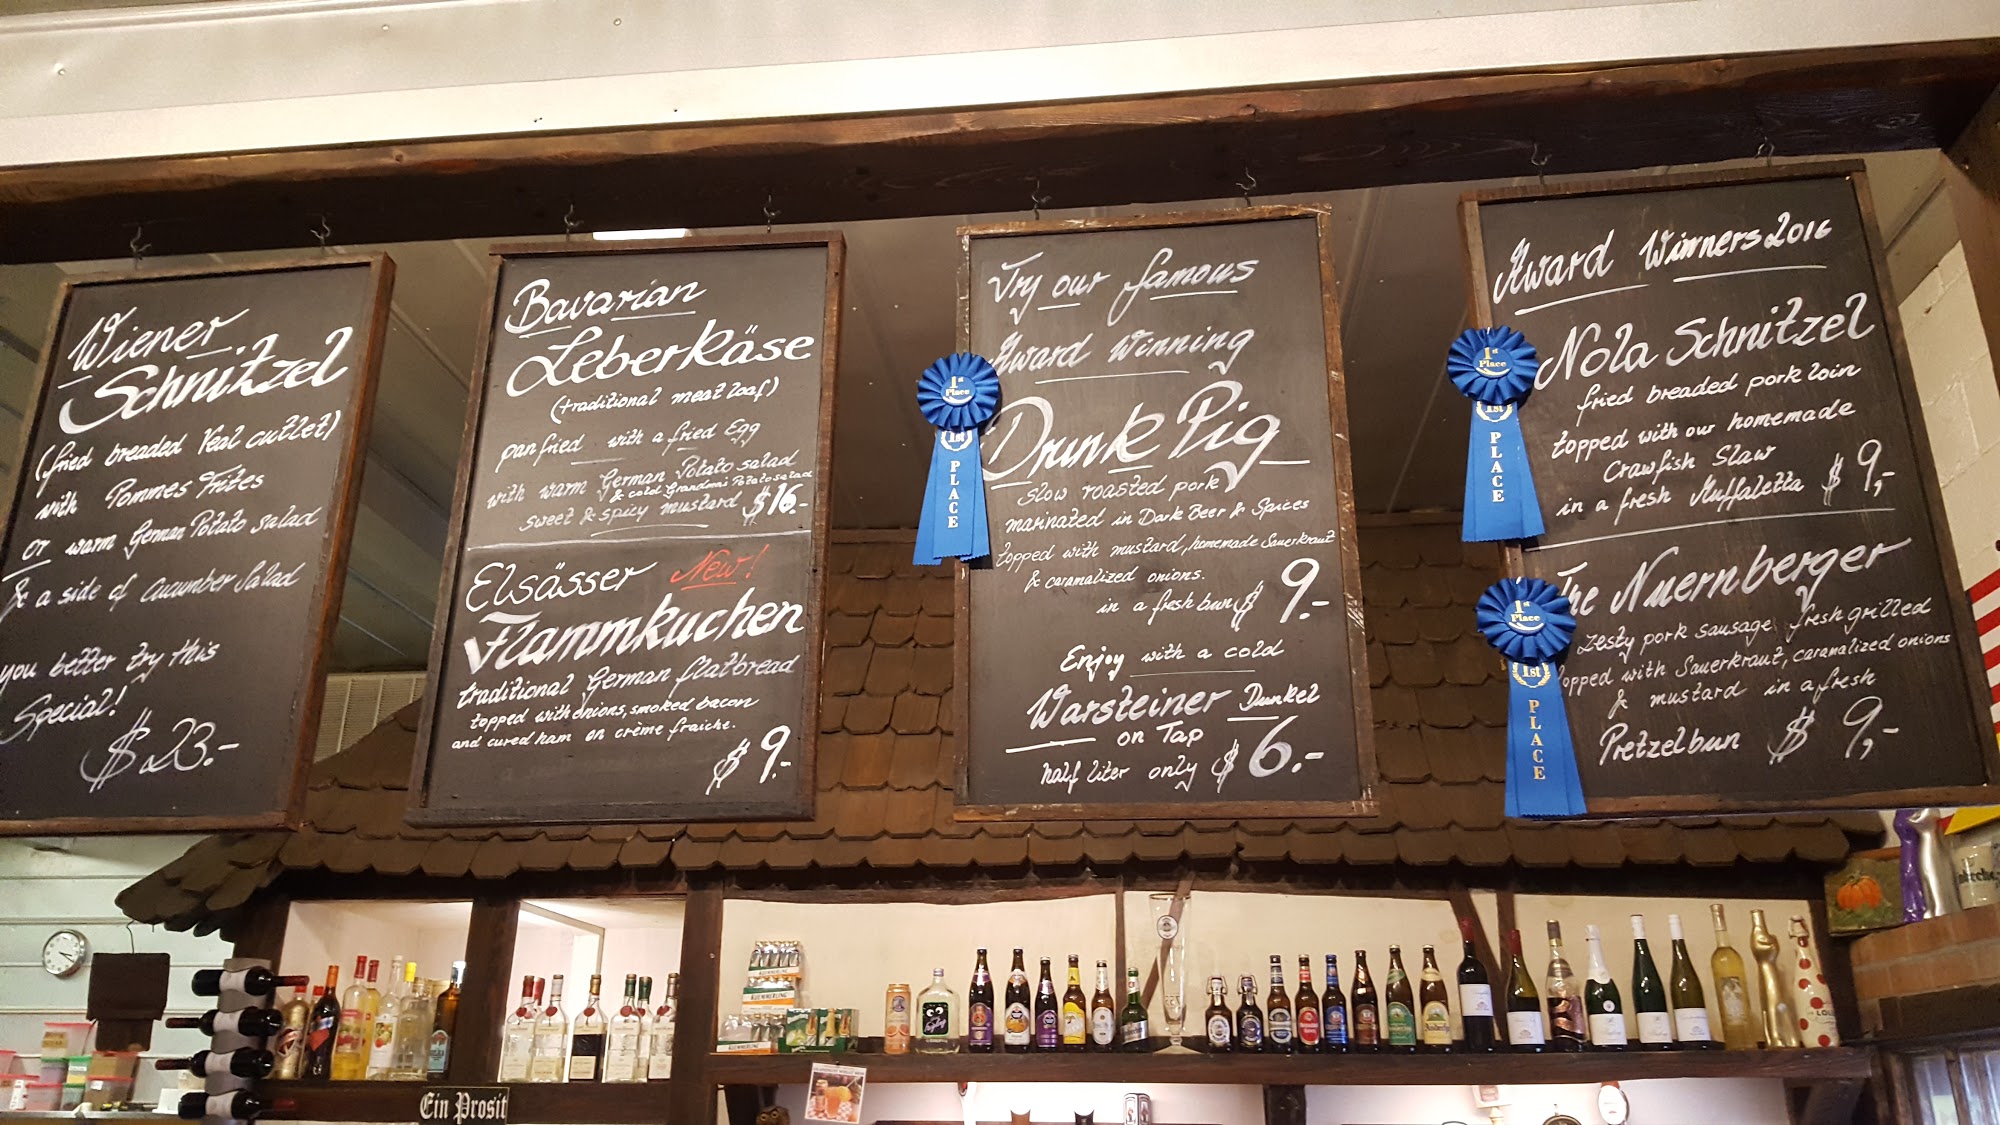 Wiener
Schnitzel
(fried breaded Veal cutlet)
with Pommes Frites
or warm German Potato salad
& a side of cucumber Salad
you better try this
Special!
$ 23.-
Bavarian
Leberkäse
(traditional meat loaf)
pan fried with a fried Egg
with warm German Potato salad
& cold Grandma's Potato salad
sweet & spicy mustard $16.-
Elsässer New!
Flammkuchen
traditional German flatbread
topped with onions, smoked bacon
and cured ham on crème fraiche.
$ 9.-
Try our famous
Award Winning
Drunk Pig
slow roasted pork
marinated in Dark Beer & Spices
topped with mustard, homemade Sauerkraut
& caramalized onions.
in a fresh bun $ 9.-
Enjoy with a cold
Warsteiner Dunkel
on Tap
half liter only $ 6.-
1st
Place
1st
PLACE
Award Winners 2016
Nola Schnitzel
fried breaded pork loin
topped with our homemade
Crawfish Slaw
in a fresh Muffaletta $ 9,-
1st
Place
1st
PLACE
The Nuernberger
zesty pork sausage fresh grilled
topped with Sauerkraut, caramalized onions
& mustard in a fresh
Pretzelbun $ 9,-
1st
Place
1st
PLACE
Ein Prosit
KUEMMERLING